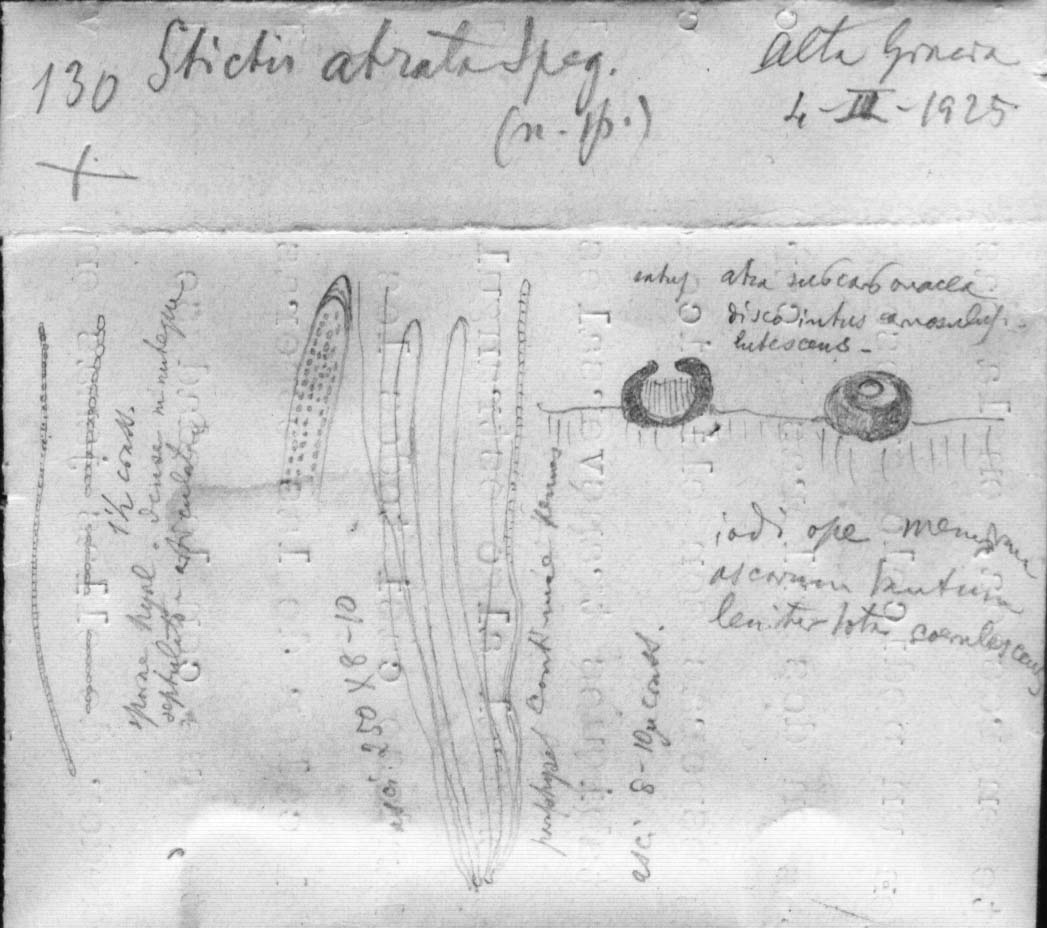 130 Stictis atrata Speg.
(n. sp.)
Alta Gracia
4-III-1925
atra subcarbonacea
disco intus carnosulus
lutescens -
iodi ope membrana
ascorum tantum
leniter tota coerulescens
sporae hyal. dense minuteque
septulato-articulatae
1½ crass.
asci 250 X 8-10
paraphyses continuae
asci 8-10µ crass.